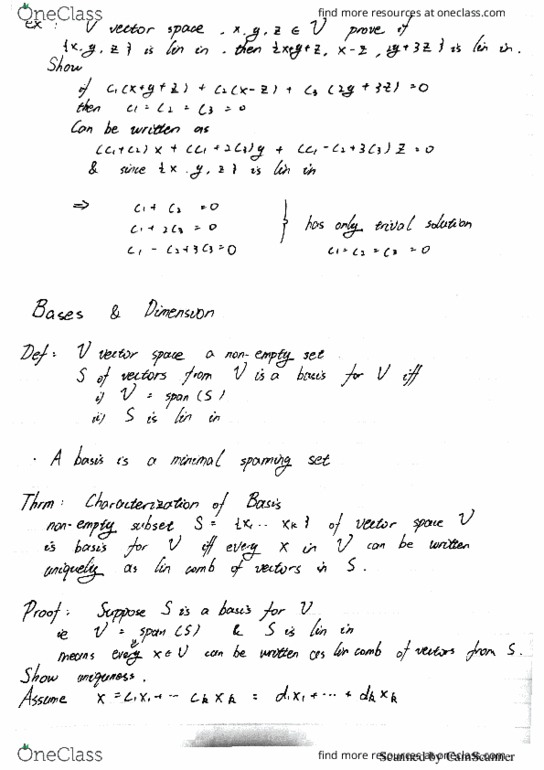 OneClass
find more resources at oneclass.com
Ex: V vector space, x, y, z ∈ V prove if
{x, y, z} is lin in. then {x+y+z, x-z, 2y+3z} is lin in.
Show
if c₁(x+y+z) + c₂(x-z) + c₃(2y+3z)=0
then c₁=c₂=c₃=0
Can be written as
(c₁+c₂)x + (c₁+2c₃)y + (c₁-c₂+3c₃)z=0
& since {x, y, z} is lin in
⇒ c₁+c₂=0
c₁+2c₃=0
c₁-c₂+3c₃=0
} has only trival solution
c₁=c₂=c₃=0
Bases & Dimension
Def: V vector space a non-empty set
S of vectors from V is a basis for V iff
i) V = span(S)
ii) S is lin in
· A basis is a minimal spanning set
Thrm: Characterization of Basis
non-empty subset S = {x₁ ... xₖ} of vector space V
is basis for V iff every x in V can be written
uniquely as lin comb of vectors in S.
Proof: Suppose S is a basis for V
ie V = span(S) & S is lin in
means every x∈V can be written as lin comb of vectors from S.
Show uniqueness.
Assume x = c₁x₁+... cₖxₖ = d₁x₁+...+dₖxₖ
OneClass
find more resources at oneclass.com
Scanned by CamScanner